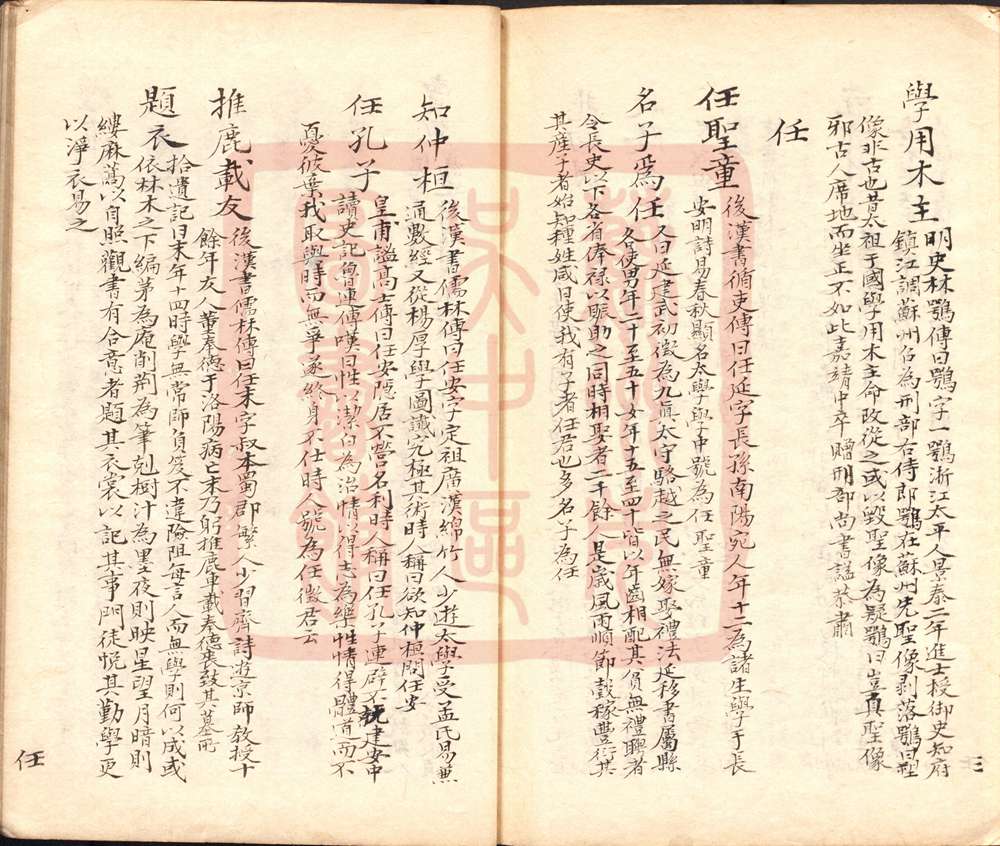 學用木主 明史林鶚傳曰鶚字一鶚浙江太平人景泰二年進士授御史知府
鎮江調蘇州召為刑部右侍郎鶚在蘇州先聖像剥落鶚曰塑
像非古也昔太祖于國學用木主命改從之或以毀聖像為疑鶚曰豈真聖像
邪古人席地而坐正不如此嘉靖中卒贈刑部尚書謚恭肅
任
任聖童 後漢書循吏傳曰任延字長孫南陽宛人年十二為諸生學于長
安明詩易春秋顯名太學學中號為任聖童
名子為任 又曰延建武初徵為九真太守駱越之民無嫁娶禮法延移書屬縣
各使男年二十至五十女年十五至四十皆以年齒相配其貧無禮聘者
令長史以下各省俸祿以賑助之同時相娶者二千餘人是歲風雨順節穀稼豐衍其
其産子者始知種姓咸曰使我有子者任君也多名子為任
三
知仲桓 後漢書儒林傳曰任安字定祖廣漢綿竹人少遊太學受孟氏易兼
通數經又從楊厚學圖讖究極其術時人稱曰欲知仲桓問任安
任孔子 皇甫謐高士傳曰任安隱居不營名利時人稱曰任孔子連辟不就建安中
讀史記魯連傳嘆曰性以潔白為治情以得志為樂性情得體道而不
憂彼棄我取與時而無爭遂終身不仕時人號為任徵君云
推鹿載友 後漢書儒林傳曰任末字叔本蜀郡繁人少習齊詩遊京師教授十
餘年友人董奉德于洛陽病亡末乃躬推鹿車載奉德喪致其墓所
題衣 拾遺記曰末年十四時學無常師負笈不違險阻每言人而無學則何以成或
依林木之下編茅為庵削荆為筆剋樹汁為墨夜則映星望月暗則
縷麻蒿以自照觀書有合意者題其衣裳以記其事門徒悅其勤學更
以淨衣易之
任